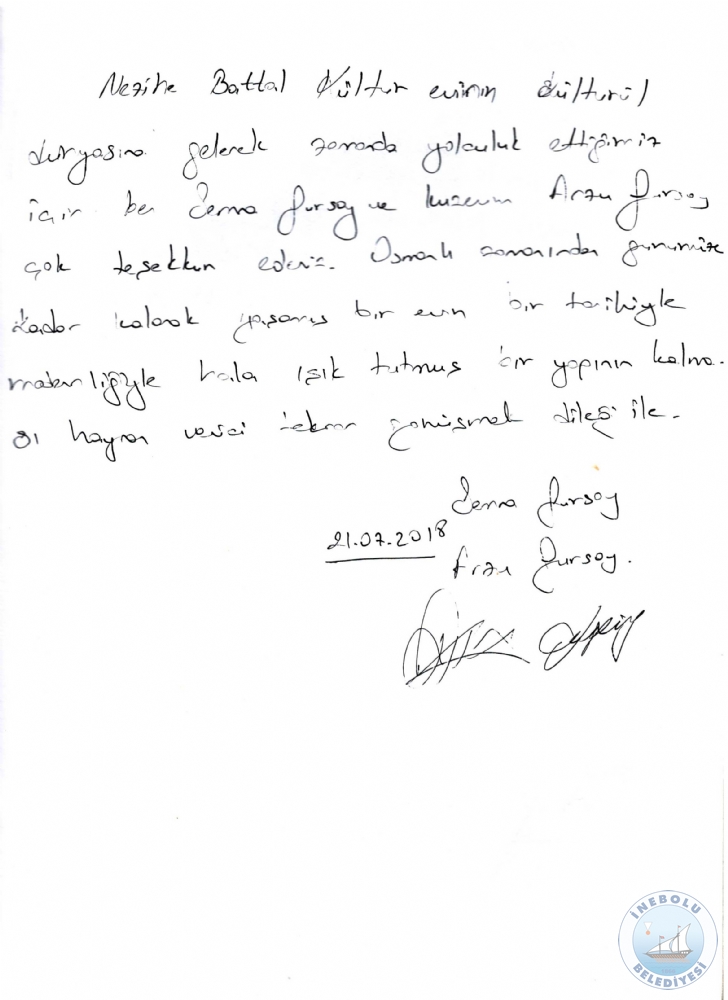 Nezihe Battal Kültür evinin Kültürül
dünyasına gelerek zamanda yolculuk ettiğimiz
için ben Sema Gursoy ve kuzenim Arzu Gursoy
çok teşekkün ederiz. Osmanlı zamanından günümüze
kadar kalarak yaşamış bir evin bir tarihiyle
hala ışık tutmuş bir yapının kalma-
sı hayran verici tekrar görüşmek dileği ile.
Sema Gursoy
21.07.2018
Arzu Gursoy.
İNEBOLU
BELEDİYESİ